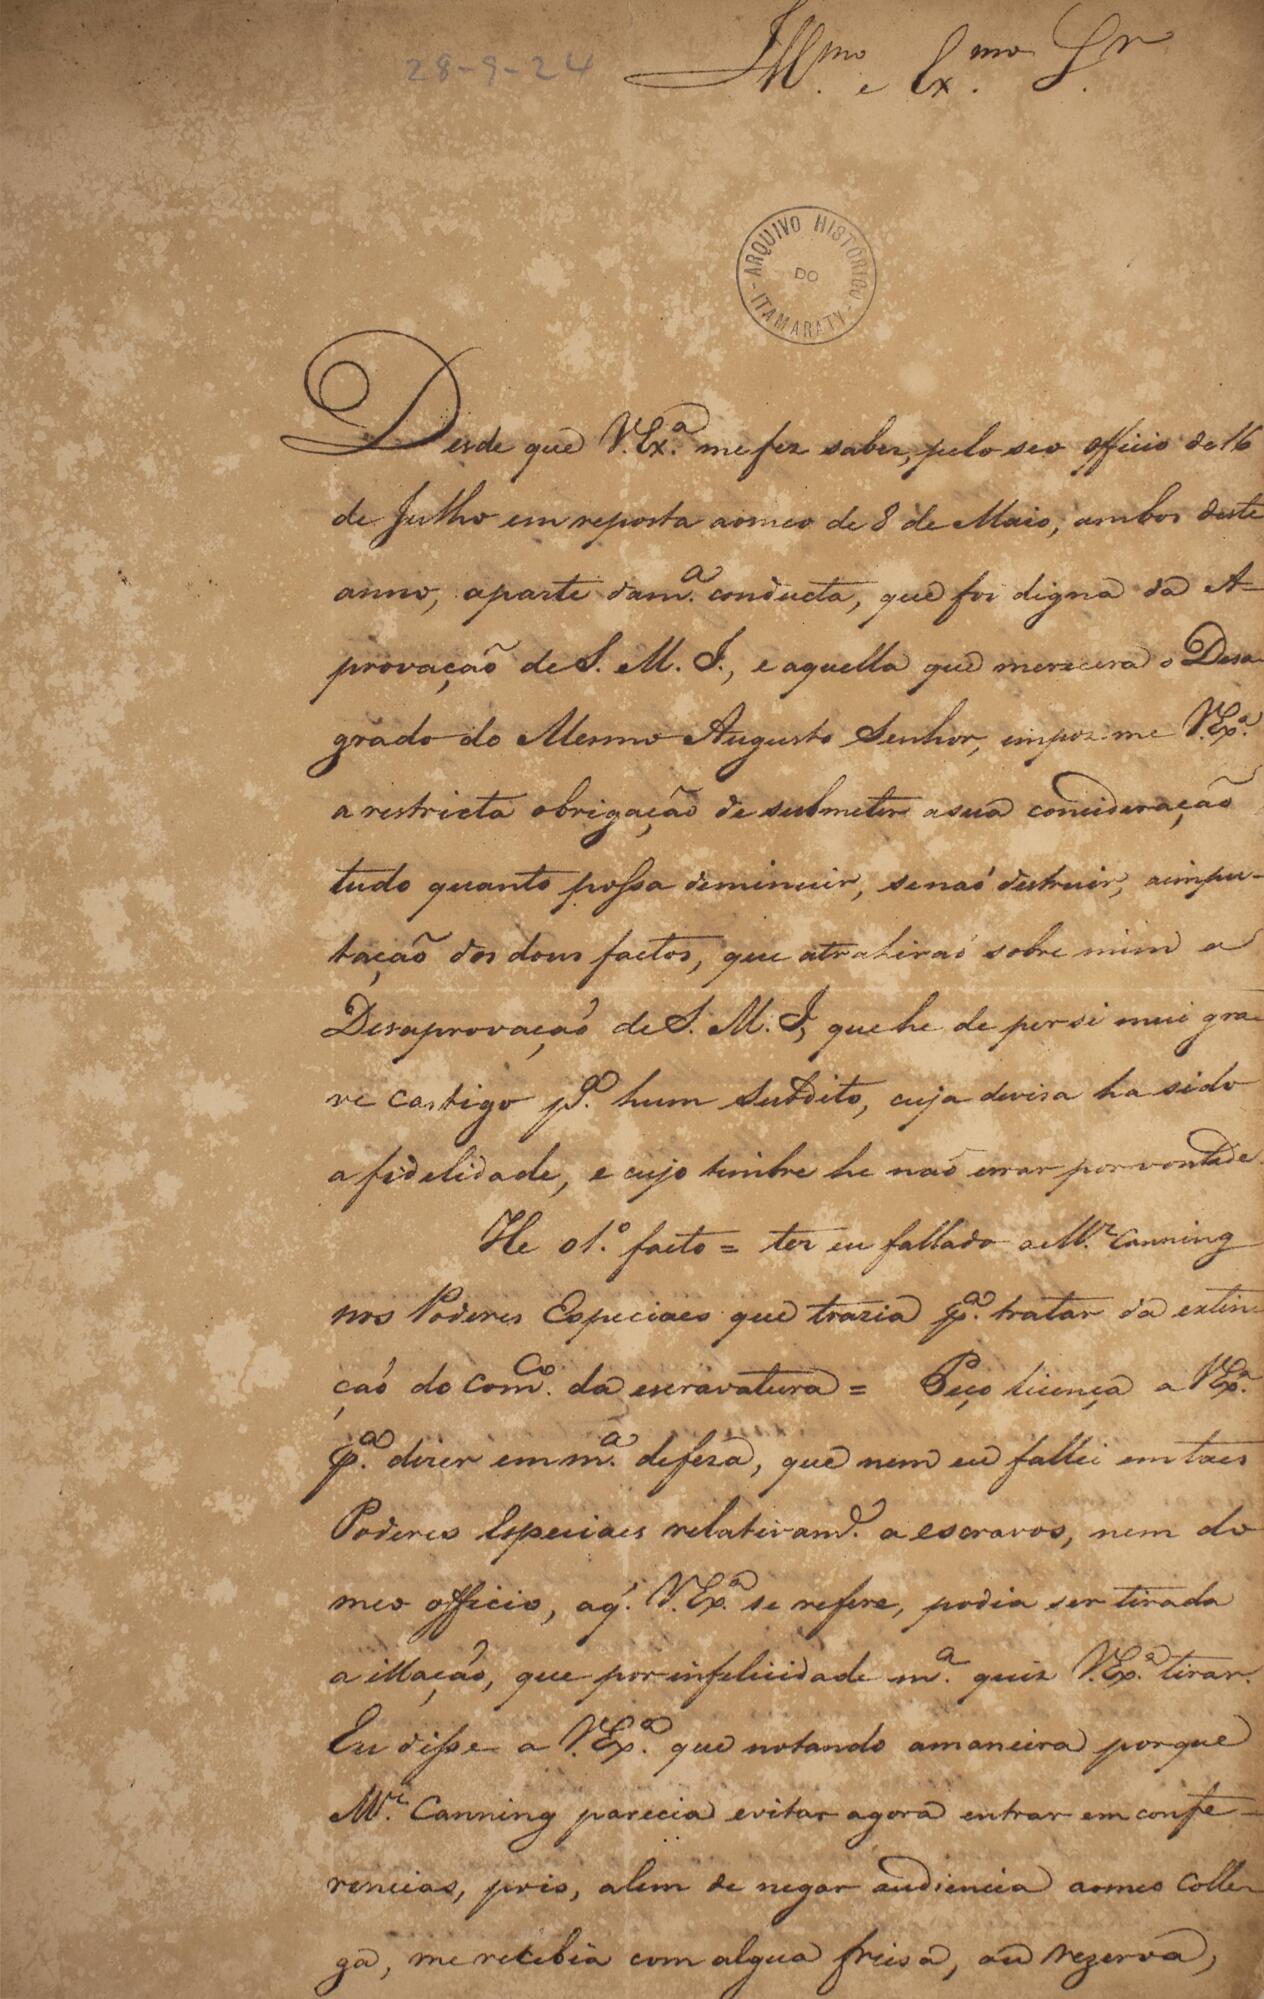 28-9-24
Illmo. e Exmo. Sr.
ARQUIVO HISTÓRICO
DO
ITAMARATY
Desde que V. Exa. me fez saber, pelo seo officio de 16
de Julho em reposta ao meo de 8 de Maio, ambos deste
anno, a parte da ma. conducta, que foi digna da A-
provação de S. M. I., e aquella que merecera o Desa-
grado do Mesmo Augusto Senhor, impoz-me V. Exa.
a restricta obrigação de submeter a sua consideração
tudo quanto possa deminuir, se naó destruir, a impu-
tação dos dous factos, que atrahiraó sobre mim a
Desaprovação de S. M. I., que he de per si mui gra-
ve castigo pa. hum Subdito, cuja devisa ha sido
a fidelidade, e cujo timbre he naó errar por vontade.
He o 1.º facto = ter eu fallado a Mr. Canning
nos Poderes Especiaes que trazia pa. tratar da extin-
çaó do comco. da escravatura = Peço licença a V. Exa.
pa. dizer em ma. defeza, que nem eu fallei em taes
Poderes Especiaes relativamte. a escravos, nem do
meo officio, a q'. V. Exa. se refere, podia ser tirada
a illação, que por infelicidade ma. quiz V. Exa. tirar.
Eu disse a V. Exa. que notando a maneira porque
Mr. Canning parecia evitar agora entrar em confe-
rencias, pois, alem de negar audiencia ao meo Colle-
ga, me recebia com algua frieza, ou rezerva,